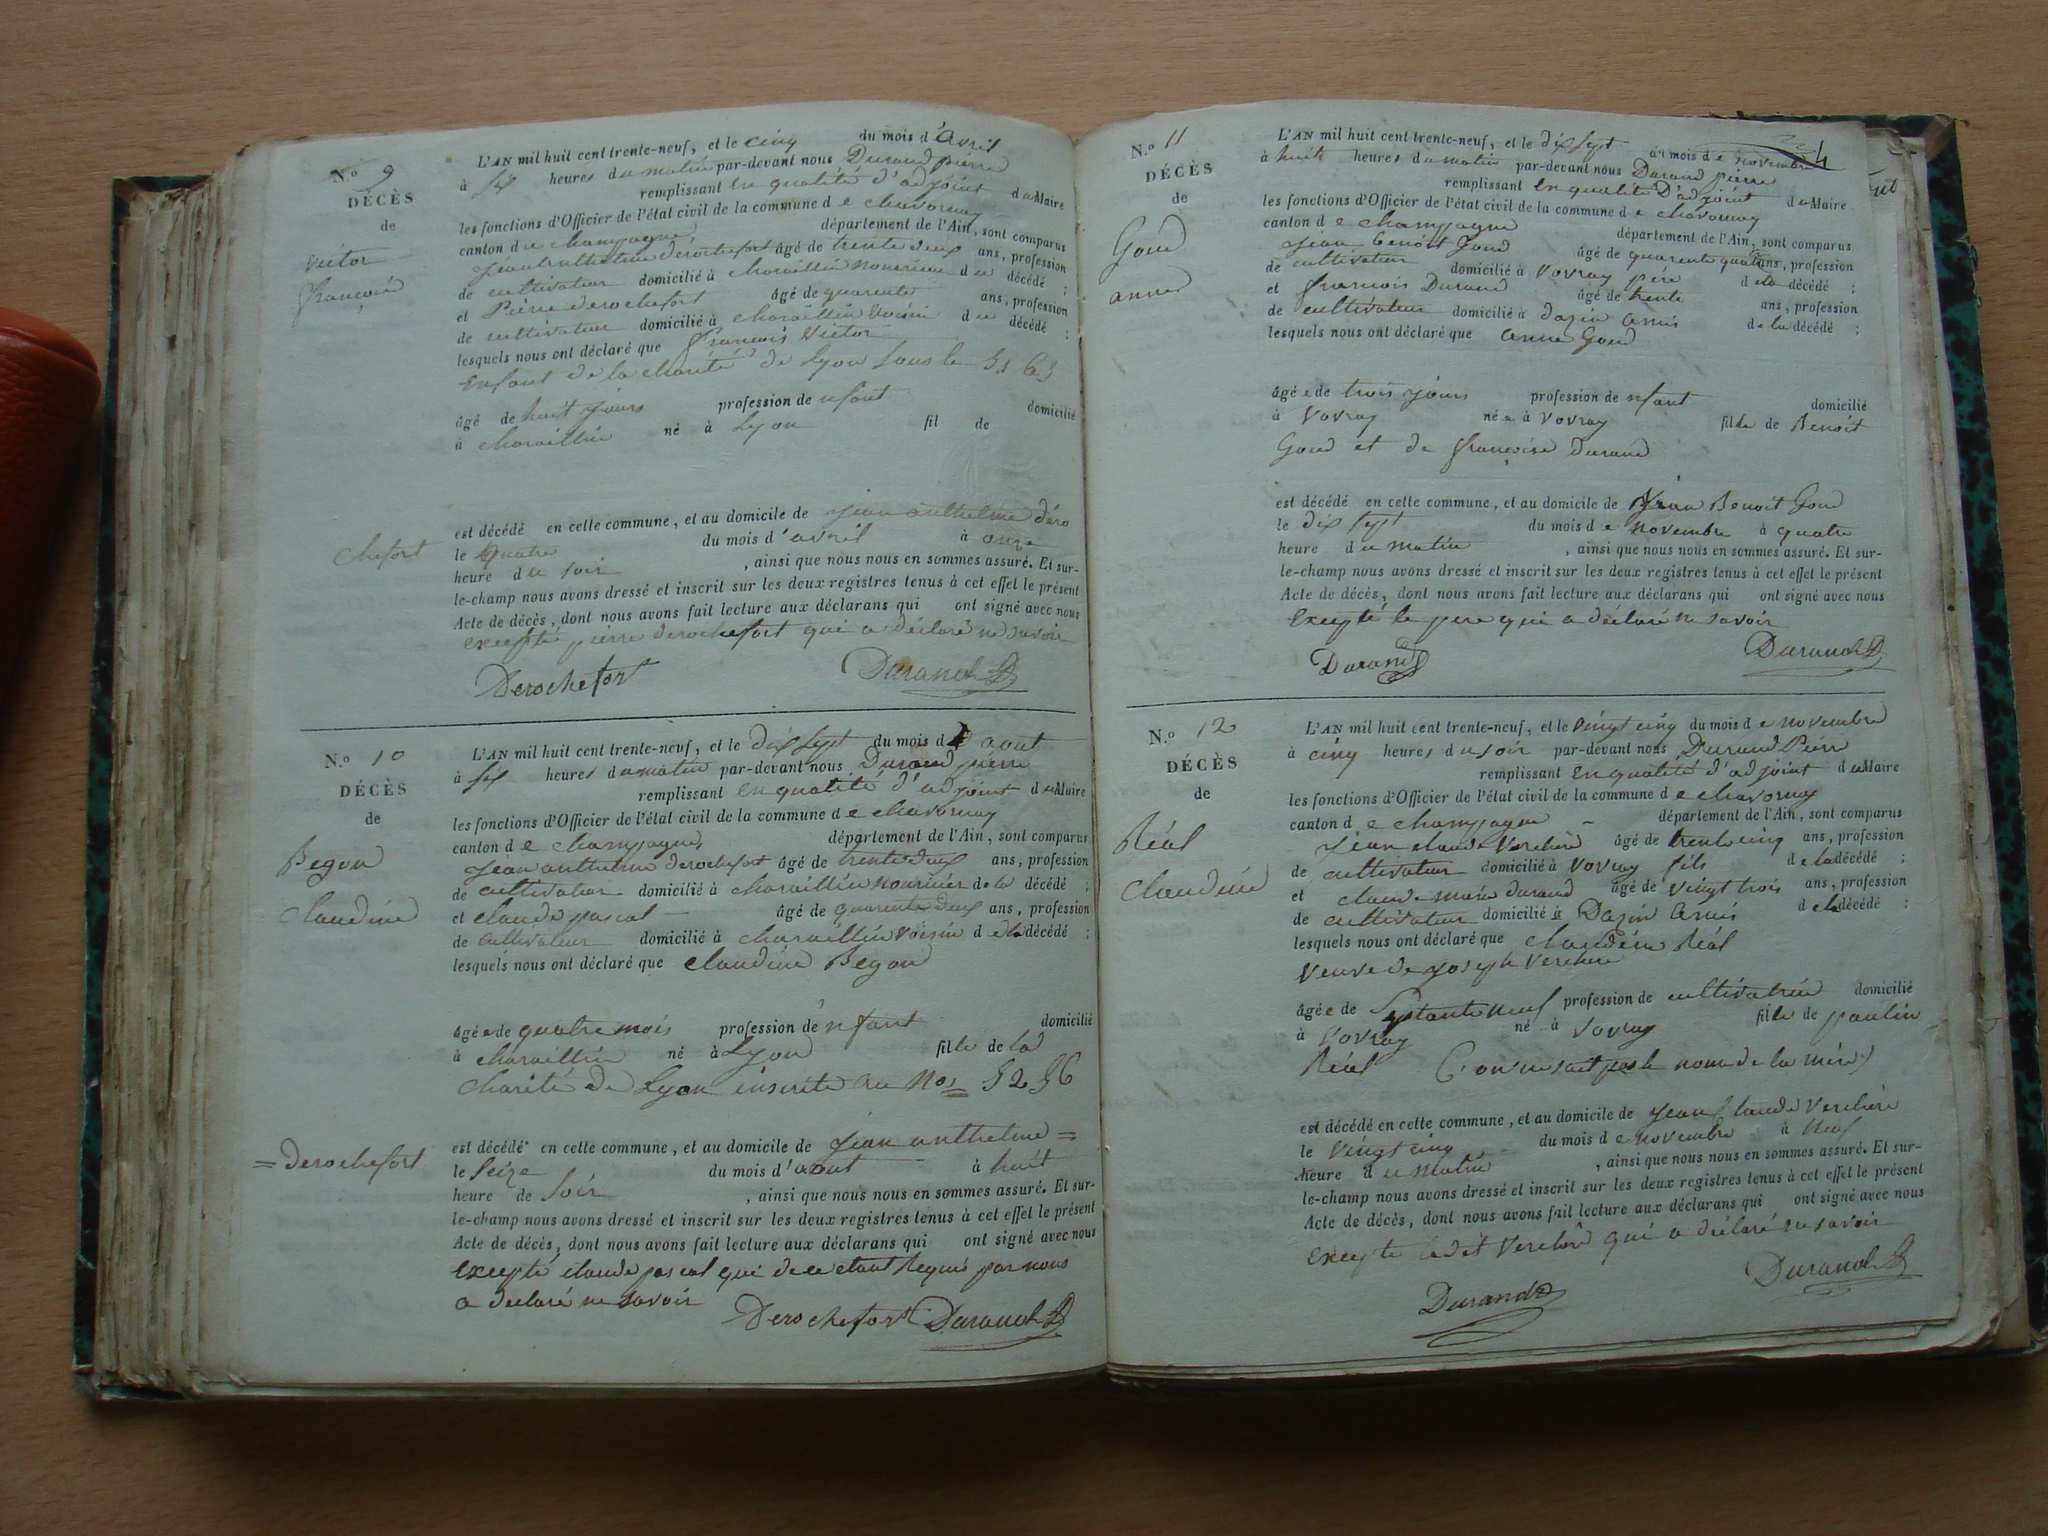 N.o 9
DÉCÈS
de
Victor
François
L'AN mil huit cent trente-neuf, et le cinq du mois d'avril
à six heures du matin par-devant nous Durand pierre
remplissant en qualité d'adjoint du Maire
les fonctions d'Officier de l'état civil de la commune de chavornay
canton de champagne, département de l'Ain, sont comparus
jean anthelme derochefort âgé de trente deux ans, profession
de cultivateur domicilié à charaillin nouricier du décédé ;
et Pierre derochefort âgé de quarente ans, profession
de cultivateur domicilié à charaillin voisin du décédé ;
lesquels nous ont déclaré que françois Victor
Enfant de la charité de Lyon sous le
âgé de huit jours profession de nfant domicilié
à charaillin né à Lyon fil de
est décédé en cette commune, et au domicile de jean anthelme déro
chefort
le quatre du mois d'avril à onze
heure du soir , ainsi que nous nous en sommes assuré. Et sur-
le-champ nous avons dressé et inscrit sur les deux registres tenus à cet effet le présent
Acte de décès, dont nous avons fait lecture aux déclarans qui ont signé avec nous
excepté pierre derochefort qui a déclaré ne savoir
Derochefort Durand
N.o 10
DÉCÈS
de
Begon
Claudine
L'AN mil huit cent trente-neuf, et le dix sept du mois d aout
à six heures du matin par-devant nous Durand pierre
remplissant en qualité d'adjoint du Maire
les fonctions d'Officier de l'état civil de la commune de chavornay
canton de champagne, département de l'Ain, sont comparus
jean anthelme derochefort âgé de trente deux ans, profession
de cultivateur domicilié à charaillin nouricier de la décédé ;
et claude pascal âgé de quarente deux ans, profession
de cultivateur domicilié à charaillin voisin de la décédé ;
lesquels nous ont déclaré que claudine Begon
âgé e de quatre mois profession de nfant domicilié
à charaillin né à Lyon fille de la
charité de Lyon inscrite au Nos 5256
est décédé en cette commune, et au domicile de jean anthelme =
= derochefort
le seize du mois d'aout à huit
heure de soir , ainsi que nous nous en sommes assuré. Et sur-
le-champ nous avons dressé et inscrit sur les deux registres tenus à cet effet le présent
Acte de décès, dont nous avons fait lecture aux déclarans qui ont signé avec nous
excepté claude pascal qui de ce etant Requis par nous
a déclaré ne savoir
Derochefort Durand
N.o 11
DÉCÈS
de
Goud
anne
4
L'AN mil huit cent trente-neuf, et le dix sept du mois de novembre
à huit heures du matin par-devant nous Durand pierre
remplissant en qualité D'adjoint du Maire
les fonctions d'Officier de l'état civil de la commune de chavornay
canton de champagne département de l'Ain, sont comparus
jean Benoit Goud âgé de quarente quatre ans, profession
de cultivateur domicilié à vovray père de la décédé ;
et françois Durand âgé de trente ans, profession
de cultivateur domicilié à dazin amis de la décédé ;
lesquels nous ont déclaré que anne Goud
âgé e de trois jours profession de nfant domicilié
à vovray né e à vovray fille de Benoit
Goud et de françoise durand
est décédé en cette commune, et au domicile de jean Benoit Goud
le dix sept du mois de novembre à quatre
heure du matin , ainsi que nous nous en sommes assuré. Et sur-
le-champ nous avons dressé et inscrit sur les deux registres tenus à cet effet le présent
Acte de décès, dont nous avons fait lecture aux déclarans qui ont signé avec nous
excepté le pere qui a déclaré ne savoir
Durand Durand
N.o 12
DÉCÈS
de
Réal
claudine
L'AN mil huit cent trente-neuf, et le vingt cinq du mois de novembre
à cinq heures du soir par-devant nous Durand Pierre
remplissant en qualité d'adjoint du Maire
les fonctions d'Officier de l'état civil de la commune de chavornay
canton de champagne département de l'Ain, sont comparus
jean claude Verchère âgé de trente cinq ans, profession
de cultivateur domicilié à vovray fils de la décédé ;
et claude marie durand âgé de vingt trois ans, profession
de cultivateur domicilié à Dazin amis de la décédé ;
lesquels nous ont déclaré que claudine Réal
veuve de joseph Verchere
âgé e de Septante neuf profession de cultivatrice domicilié
à vovray né à vovray fille de paulin
Réal (on ne sait pas le nom de la mère)
est décédé en cette commune, et au domicile de jean claude Verchère
le vingt cinq du mois de novembre à neuf
heure du matin , ainsi que nous nous en sommes assuré. Et sur-
le-champ nous avons dressé et inscrit sur les deux registres tenus à cet effet le présent
Acte de décès, dont nous avons fait lecture aux déclarans qui ont signé avec nous
excepté ledit Verchère qui a déclaré ne savoir
Durand Durand